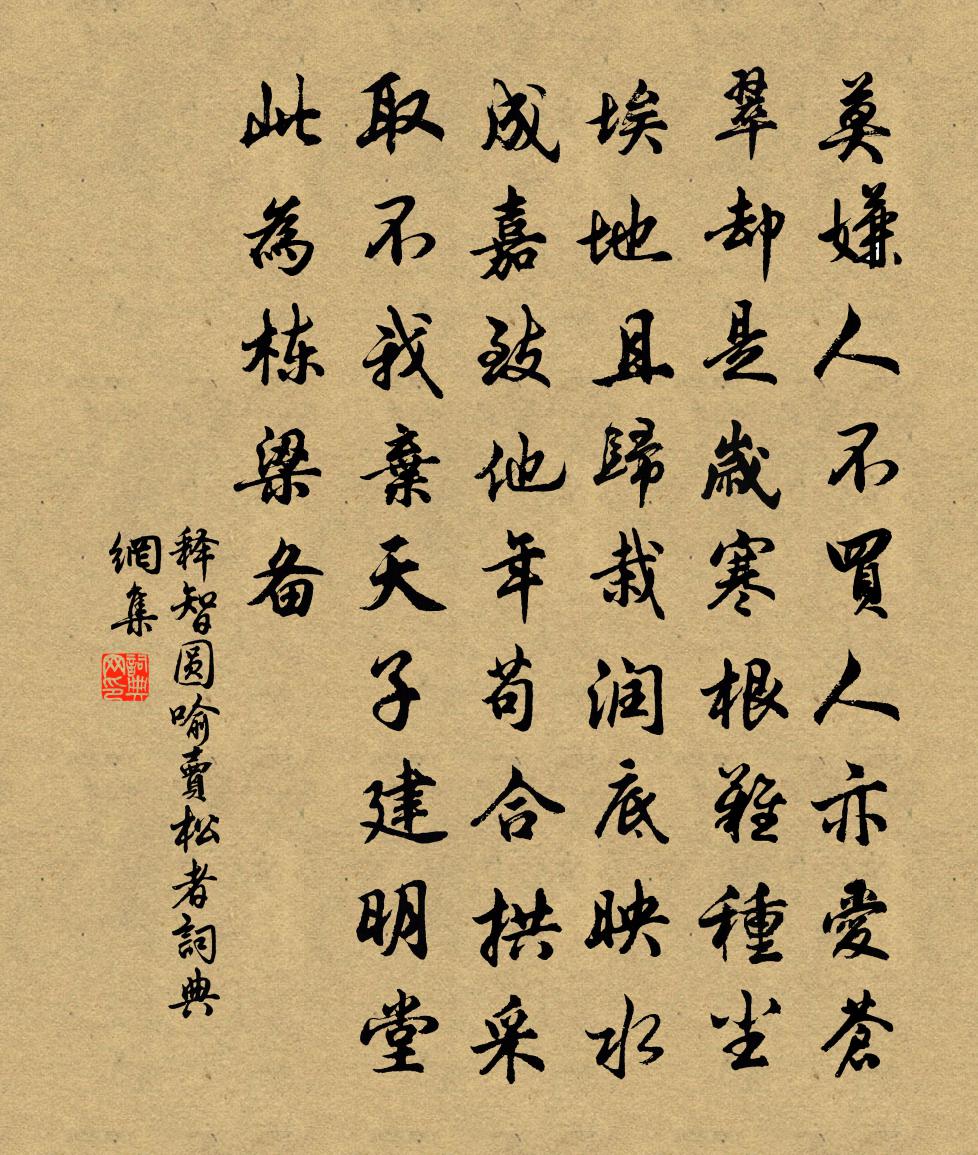 莫嫌人不買人亦愛蒼
翠却是歲寒根難種尘
埃地且歸栽润底映水
成嘉致他年苟合拱采
取不我棄天子建明堂
此為栋梁备
释智圆喻賣松者詞典
網集
詞典网印